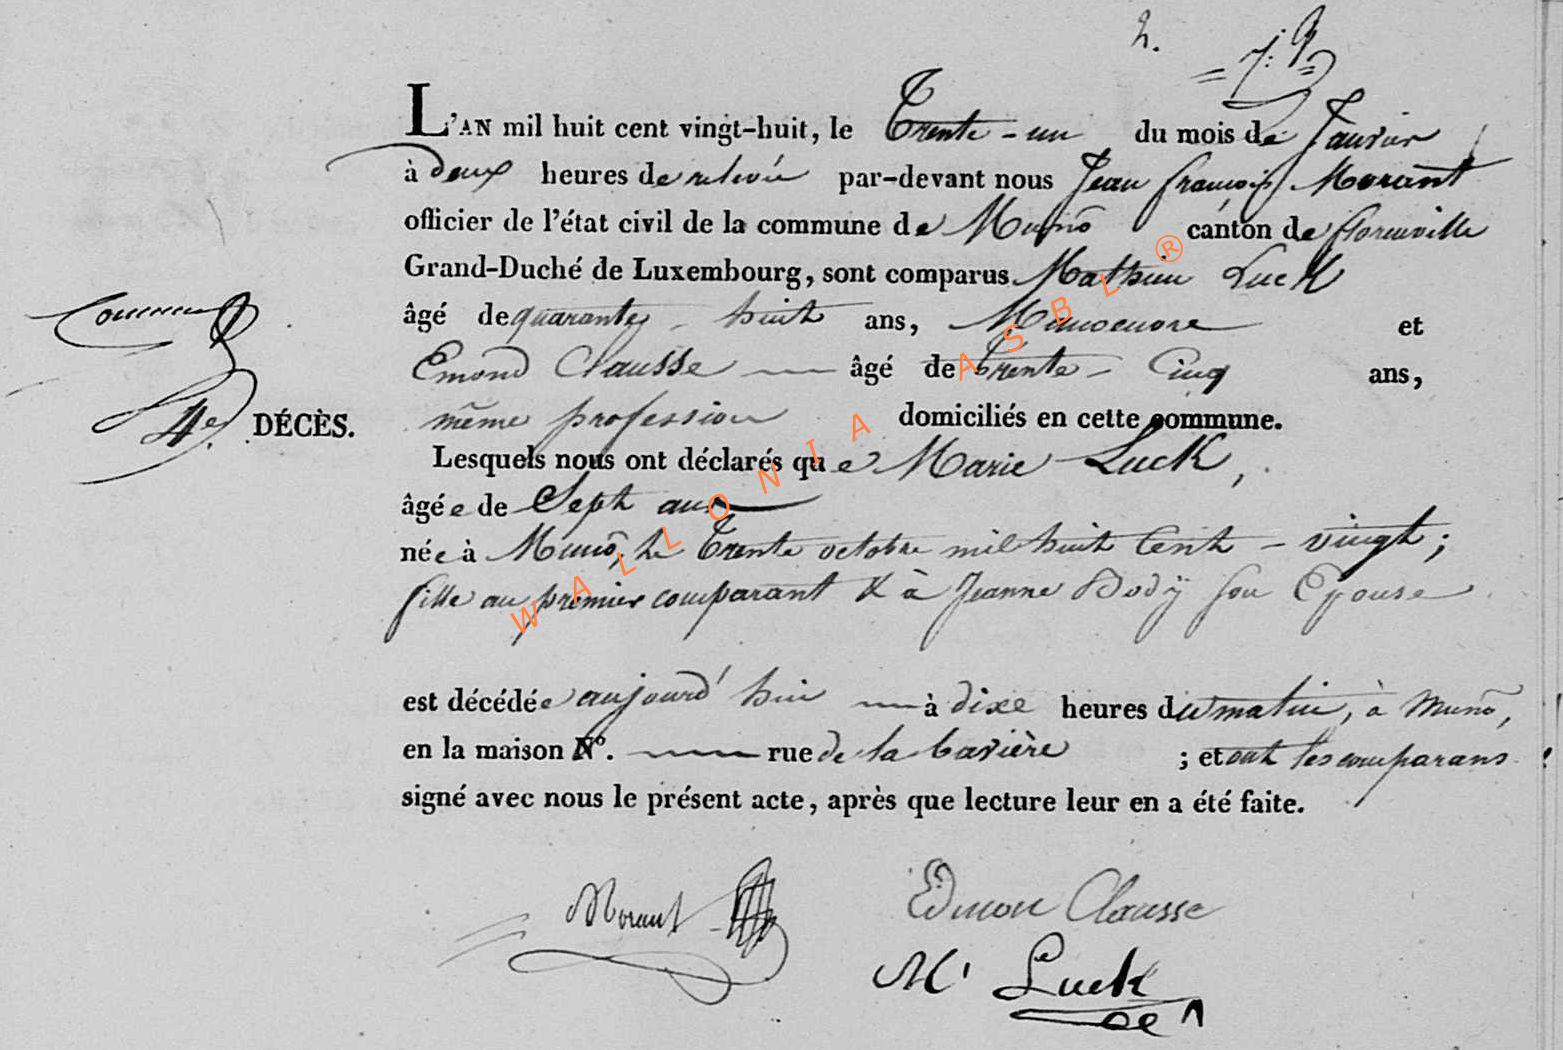 2.
L'AN mil huit cent vingt-huit, le Trente-un du mois de Janvier
à deux heures de relevée par-devant nous Jean françois Morant
officier de l'état civil de la commune de Munõ canton de florenville
Grand-Duché de Luxembourg, sont comparus Mathieu Luck
âgé de quarante-huit ans, Manoeuvre et
Emond Clausse âgé de trente-Cinq ans,
même profession domiciliés en cette commune.
4e DÉCÈS.
Lesquels nous ont déclarés que Marie Luck,
âgée de Sept ans
née à Munõ, le Trente octobre mil huit Cent-vingt;
fille au premier comparant & à Jeanne Dodÿ son Epouse
est décédée aujourd'hui à dixe heures du matin, à Munõ,
en la maison Nº. rue de la bavière ; et ont les comparans
signé avec nous le présent acte, après que lecture leur en a été faite.
Morant
Edmon Clausse
M Luck
WALLONIA ASBL ®